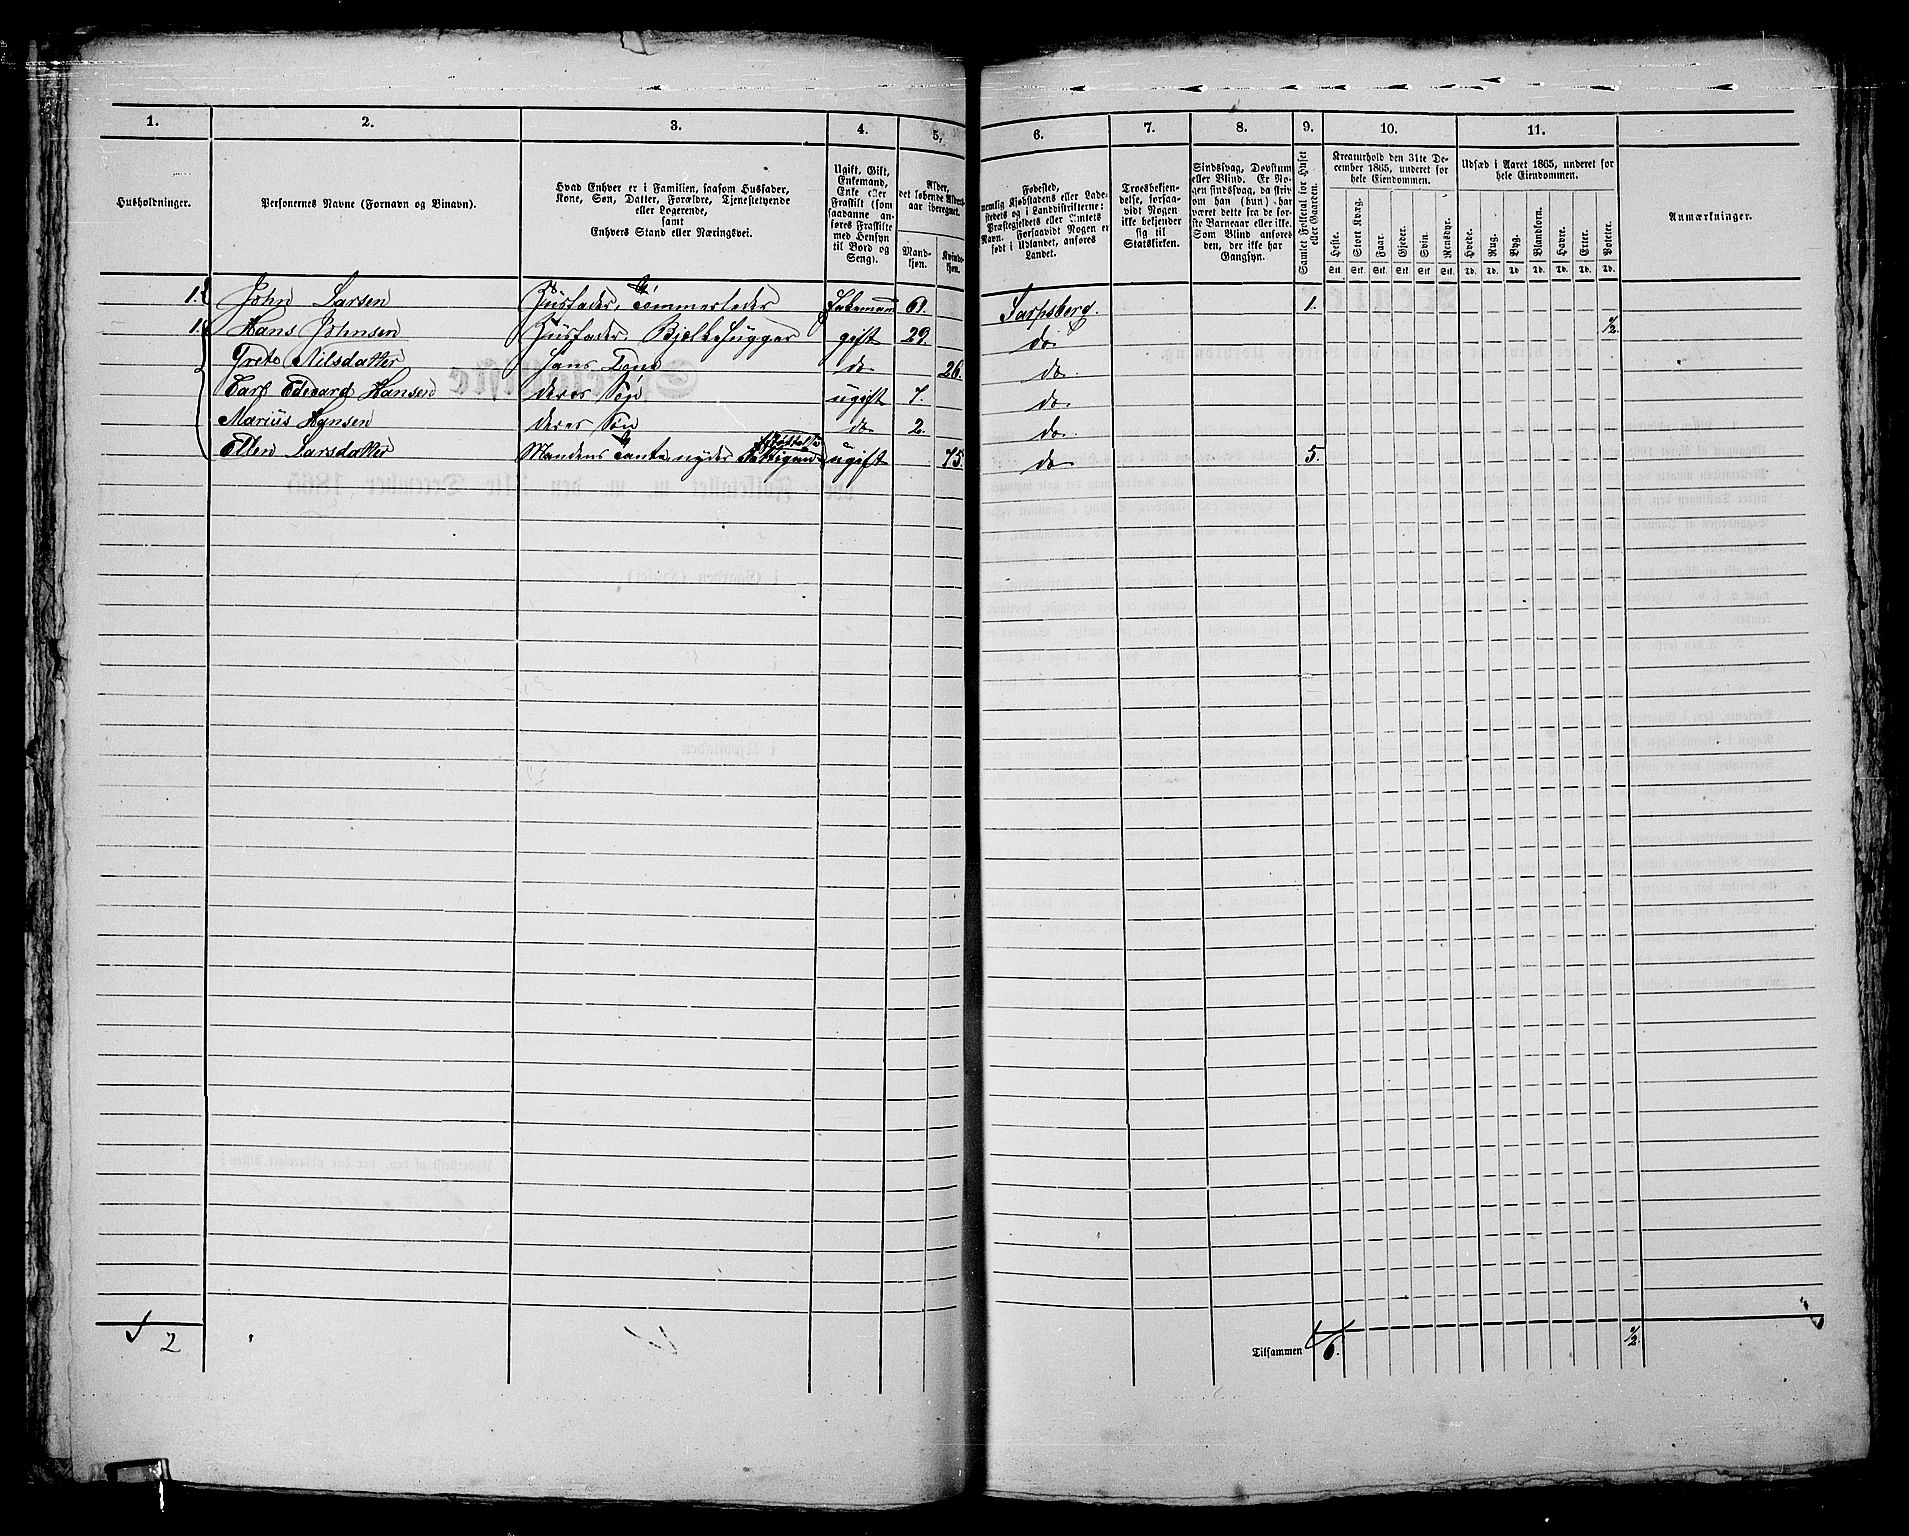 1. 2. 3. 4. 5. 6. 7. 8. 9. 10. 11.
Husholdninger.
Personernes Navne (Fornavn og Binavn).
Hvad Enhver er i Familien, saasom Husfader,
Kone, Søn, Datter, Forældre, Tjenestetyende
eller Logerende,
samt
Enhvers Stand eller Næringsvei.
Ugift, Gift,
Enkemand,
Enke eller
Fraskilt (som
saadanne an-
føres Fraskilte
med Hensyn
til Bord og
Seng).
Alder,
det løbende Alders-
aar iberegnet.
Mand-
kjøn.
Kvinde-
kjøn.
Fødested,
nemlig Kjøbstadens eller Lade-
stedets og i Landdistrikterne:
Præstegjeldets eller Amtets
Navn. Forsaavidt Nogen er
født i Udlandet, anføres
Landet.
Troesbekjen-
delse, forsaa-
vidt Nogen
ikke bekjender
sig til
Statskirken.
Sindssvag, Døvstum
eller Blind. Er No-
gen sindssvag, da skri-
ves om han (hun) har
været dette fra de før-
ste Barneaar eller ikke.
Som Blind anføres
den, der ikke har
Gangsyn.
Samlet Folketal for Huset
eller Gaarden.
Kreaturhold den 31te De-
cember 1865, underet for
hele Eiendommen.
Heste. Stort Kvæg. Faar. Gjeder. Svin. Rensdyr.
Stk. Stk. Stk. Stk. Stk. Stk.
Udsæd i Aaret 1865, underet for
hele Eiendommen.
Hvede. Rug. Byg. Blandkorn. Havre. Erter. Poteter.
Td. Td. Td. Td. Td. Td. Td.
Anmærkninger.
1. John Larsen Husfader, Tømmerleder Enkemand 61. Sarpsborg. 1.
1. Hans Johnsen Husfader, Bjelkehugger gift 29. do 1/2
Grete Nilsdatter Hans Kone do 26. do
Carl Edevard Hansen deres Søn ugift 7. do
Marius Hansen deres Søn do 2. do
Ellen Larsdatter Mandens Tante, nyder Fattigun-
derstøttelse ugift 75. do 5.
2
Tilsammen 6. 1/2